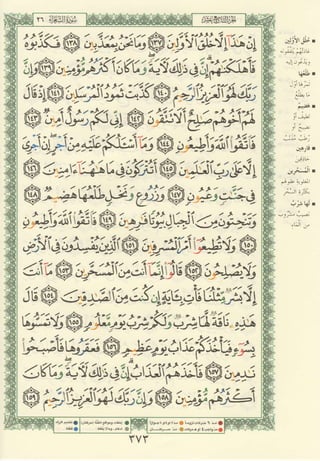 سُورَةُ الشُّعَرَاءِ ٢٦
إِنْ هَٰذَا إِلَّا خُلُقُ الْأَوَّلِينَ ﴿١٣٧﴾ وَمَا نَحْنُ بِمُعَذَّبِينَ ﴿١٣٨﴾ فَكَذَّبُوهُ
فَأَهْلَكْنَاهُمْ إِنَّ فِي ذَٰلِكَ لَآيَةً وَمَا كَانَ أَكْثَرُهُم مُّؤْمِنِينَ ﴿١٣٩﴾ وَإِنَّ
رَبَّكَ لَهُوَ الْعَزِيزُ الرَّحِيمُ ﴿١٤٠﴾ كَذَّبَتْ ثَمُودُ الْمُرْسَلِينَ ﴿١٤١﴾ إِذْ قَالَ
لَهُمْ أَخُوهُمْ صَالِحٌ أَلَا تَتَّقُونَ ﴿١٤٢﴾ إِنِّي لَكُمْ رَسُولٌ أَمِينٌ ﴿١٤٣﴾
فَاتَّقُوا اللَّهَ وَأَطِيعُونِ ﴿١٤٤﴾ وَمَا أَسْأَلُكُمْ عَلَيْهِ مِنْ أَجْرٍ إِنْ أَجْرِيَ
إِلَّا عَلَىٰ رَبِّ الْعَالَمِينَ ﴿١٤٥﴾ أَتُتْرَكُونَ فِي مَا هَاهُنَا آمِنِينَ ﴿١٤٦﴾
فِي جَنَّاتٍ وَعُيُونٍ ﴿١٤٧﴾ وَزُرُوعٍ وَنَخْلٍ طَلْعُهَا هَضِيمٌ ﴿١٤٨﴾
وَتَنْحِتُونَ مِنَ الْجِبَالِ بُيُوتًا فَارِهِينَ ﴿١٤٩﴾ فَاتَّقُوا اللَّهَ وَأَطِيعُونِ
﴿١٥٠﴾ وَلَا تُطِيعُوا أَمْرَ الْمُسْرِفِينَ ﴿١٥١﴾ الَّذِينَ يُفْسِدُونَ فِي الْأَرْضِ
وَلَا يُصْلِحُونَ ﴿١٥٢﴾ قَالُوا إِنَّمَا أَنتَ مِنَ الْمُسَحَّرِينَ ﴿١٥٣﴾ مَا أَنتَ
إِلَّا بَشَرٌ مِّثْلُنَا فَأْتِ بِآيَةٍ إِن كُنتَ مِنَ الصَّادِقِينَ ﴿١٥٤﴾ قَالَ
هَٰذِهِ نَاقَةٌ لَّهَا شِرْبٌ وَلَكُمْ شِرْبُ يَوْمٍ مَّعْلُومٍ ﴿١٥٥﴾ وَلَا تَمَسُّوهَا
بِسُوءٍ فَيَأْخُذَكُمْ عَذَابُ يَوْمٍ عَظِيمٍ ﴿١٥٦﴾ فَعَقَرُوهَا فَأَصْبَحُوا
نَادِمِينَ ﴿١٥٧﴾ فَأَخَذَهُمُ الْعَذَابُ إِنَّ فِي ذَٰلِكَ لَآيَةً وَمَا كَانَ
أَكْثَرُهُم مُّؤْمِنِينَ ﴿١٥٨﴾ وَإِنَّ رَبَّكَ لَهُوَ الْعَزِيزُ الرَّحِيمُ ﴿١٥٩﴾
خُلُقُ الْأَوَّلِينَ
طَلْعُهَا
هَضِيمٌ
فَارِهِينَ
الْمُسَحَّرِينَ
لَهَا شِرْبٌ
٣٧٣